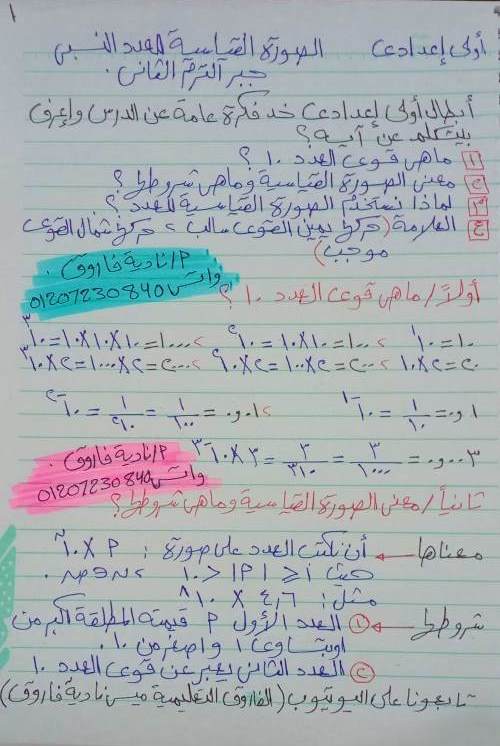 ١
أولى إعدادى الصورة القياسية للعدد النسبى
جبر الترم الثانى.
أبطال أولى إعدادى خد فكرة عامة عن الدرس وإعرف
بيتكلم عن أيه؟
١ ماهى قوى العدد ١٠؟
٢ معنى الصورة القياسية وماهى شروطها؟
٣ لماذا نستخدم الصورة القياسية للعدد؟
٤ العلامة (حركها يمين القوى سالب، حركها شمال القوى
موجب)
م/نادية فاروق.
واتس 01207230840
أولاً/ ماهى قوى العدد ١٠؟
١٠ = ١٠^١ ، ١٠٠ = ١٠×١٠ = ١٠^٢ ، ١٠٠٠ = ١٠×١٠×١٠ = ١٠^٣
٢٠ = ٢×١٠ ، ٢٠٠ = ٢×١٠٠ = ٢×١٠^٢ ، ٢٠٠٠ = ٢×١٠٠٠ = ٢×١٠^٣
٠و١ = ١/١٠ = ١٠^-١ ، ٠و٠١ = ١/١٠٠ = ١/١٠^٢ = ١٠^-٢
٠و٠٠٣ = ٣/١٠٠٠ = ٣/١٠^٣ = ٣×١٠^-٣
م/نادية فاروق.
واتس 01207230840
ثانياً/ معنى الصورة القياسية وماهى شروطها؟
معناها ← أن نكتب العدد على صورة: م × ١٠^ن
حيث ١ ≤ |م| < ١٠ ، ن ∈ ص.
مثل: ٤,٦ × ١٠^٨
شروطها ← ١ العدد الأول م قيمته المطلقة أكبر من
أو يتساوى ١ وأصغر من ١٠.
٢ العدد الثانى يعبر عن قوى العدد ١٠
تابعونا على اليوتيوب (الفاروق التعليمية ميس نادية فاروق)